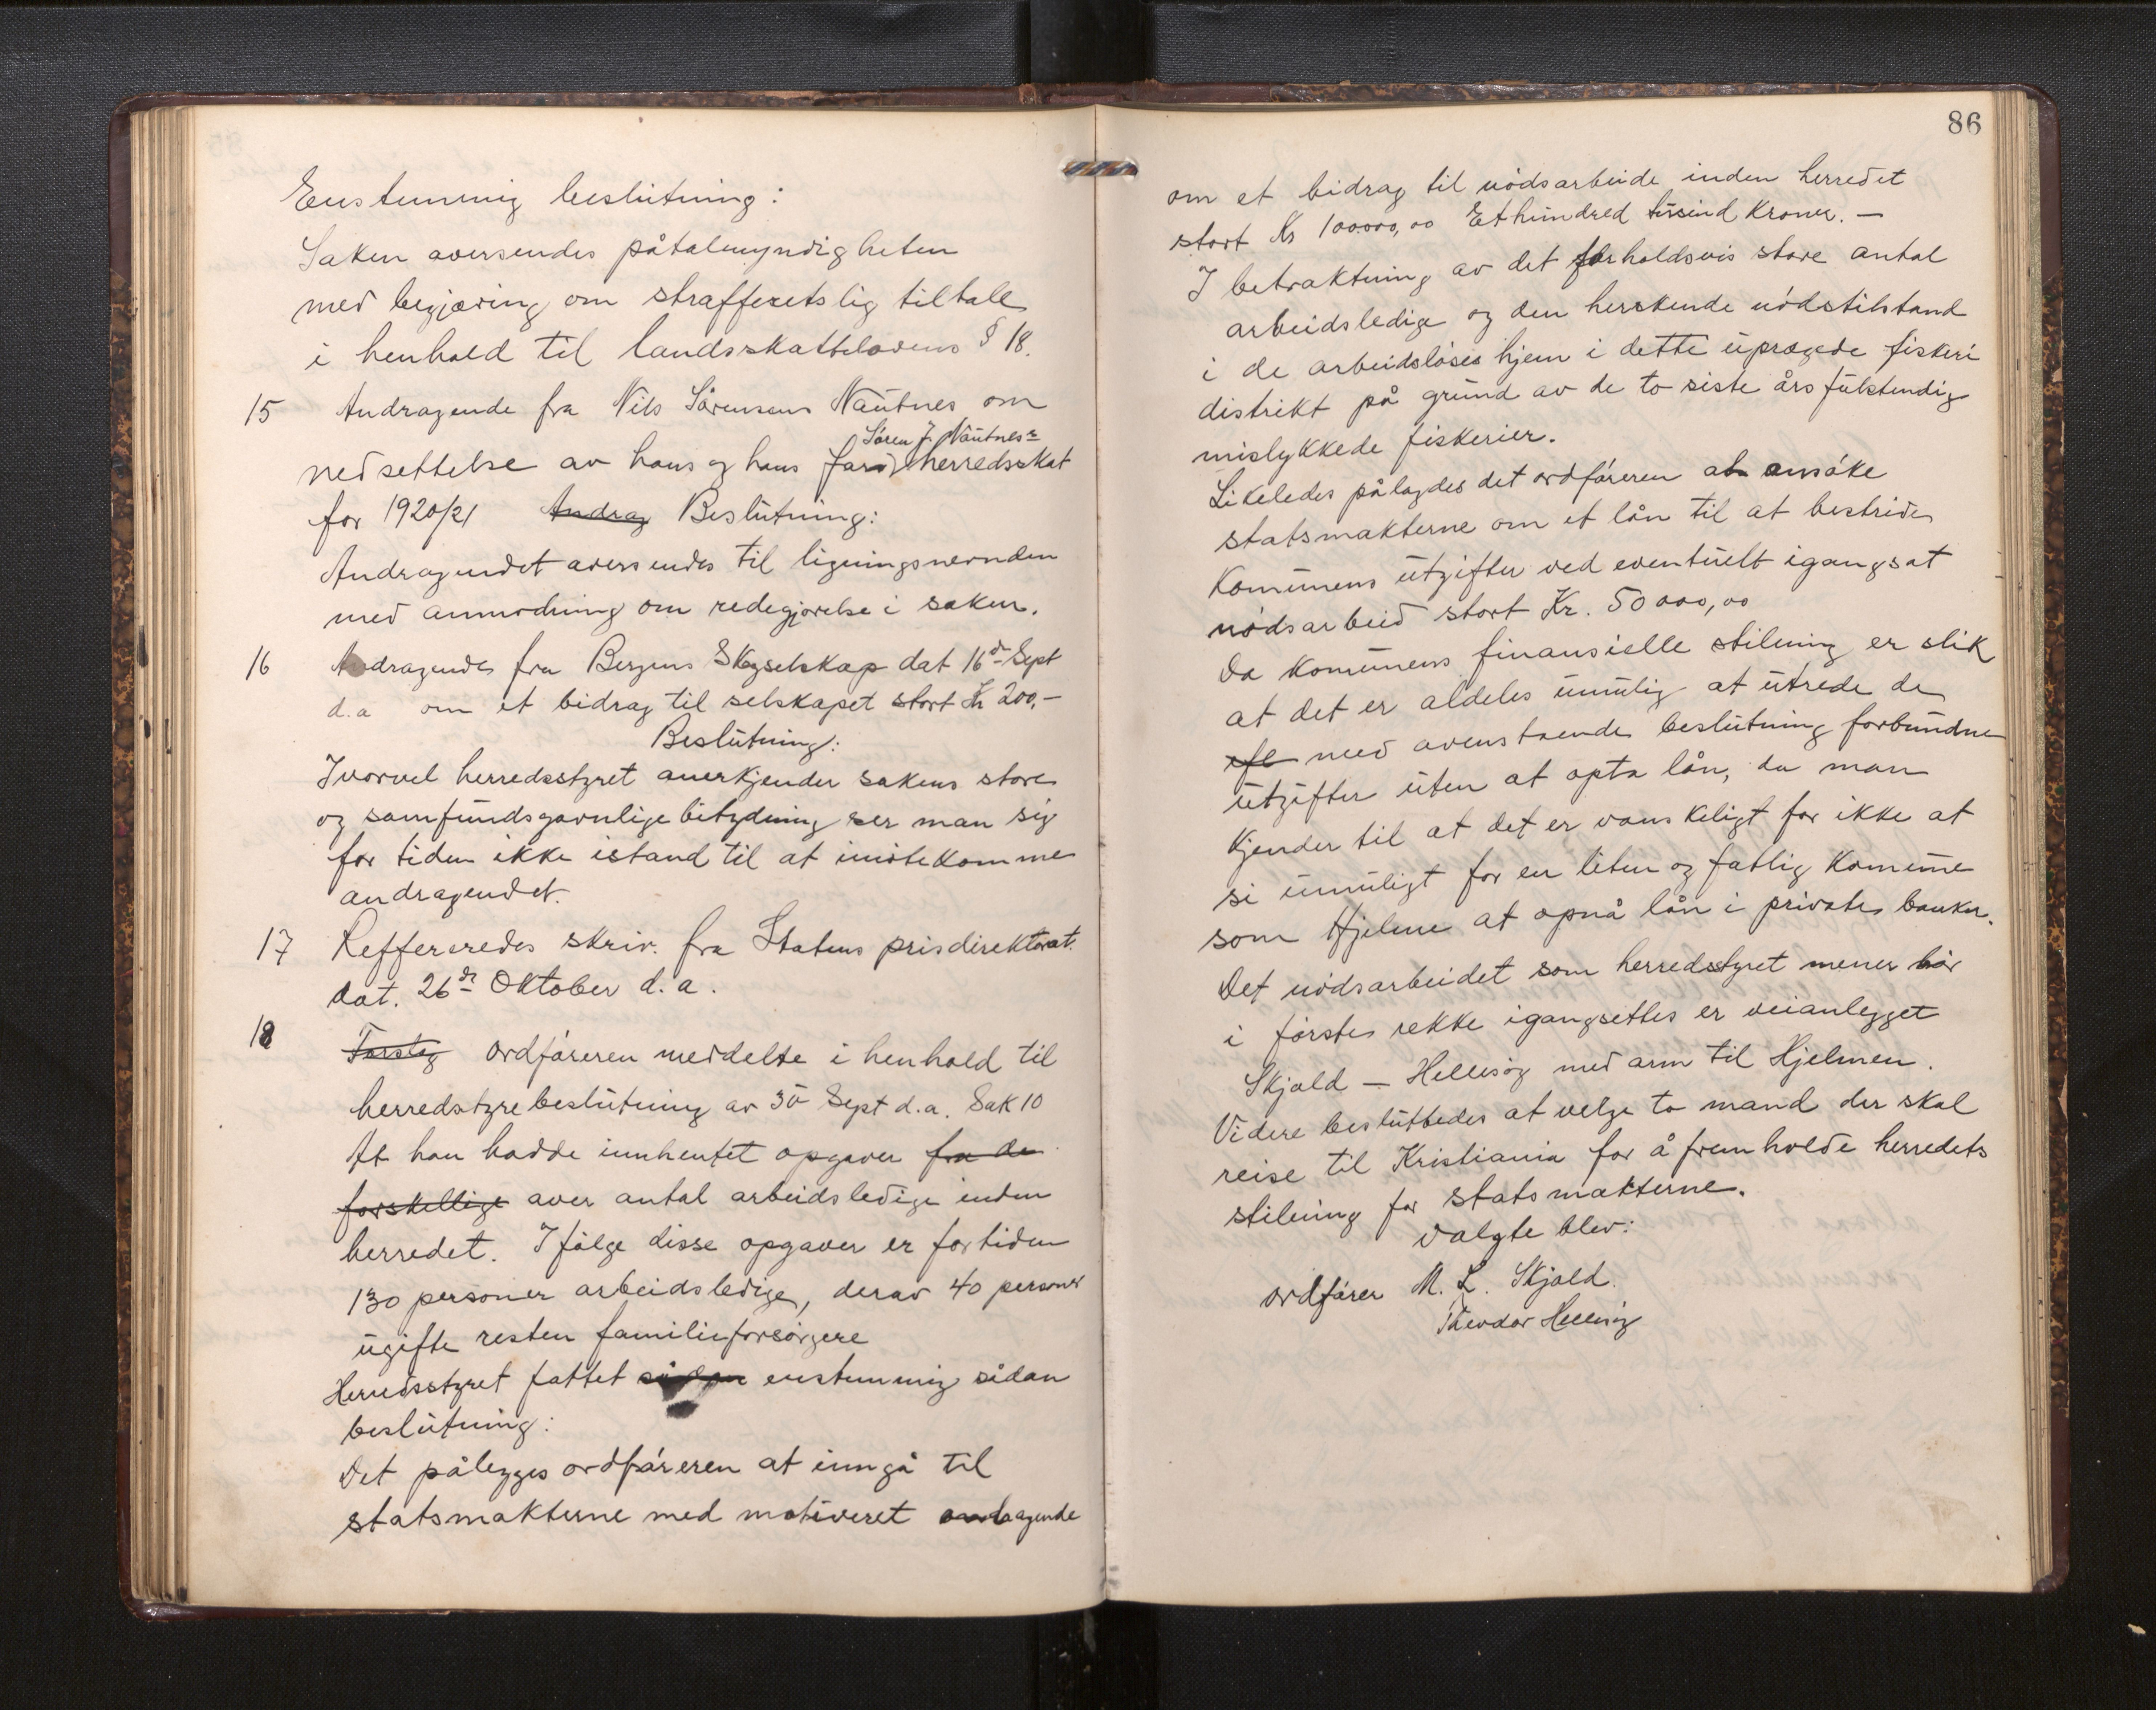 Enstemmig beslutning:
Saken oversendes påtalemyndigheten
med begjæring om strafferetslig tiltale
i henhold til landsskattelovens § 18.
15 Andragende fra Nils Sørensens Nautnes om
Søren J. Nautnes's
nedsettelse av hans og hans fars herredsskat
for 1920/21 Andrag Beslutning:
Andragendet oversendes til ligningsnevnden
med anmodning om redegjørelse i saken.
16 Andragende fra Bergens Skogselskap dat 16de Sept
d.a om et bidrag til selskapet stort Kr 200,-
Beslutning:
Ivorvel herredsstyret anerkjender sakens store
og samfundsgavnlige betydning ser man sig
for tiden ikke istand til at imøtekomme
andragendet.
17 Refferеredes skriv. fra Statens prisdirektorat.
dat. 26de Oktober d.a.
18 Forslag ordføreren meddelte i henhold til
herredstyrebeslutning av 30 Sept d.a. Sak 10
At han hadde innhentet opgaver fra de
forskellige over antal arbeidsledige inden
herredet. Ifølge disse opgaver er fortiden
130 personer arbeidsledige, derav 40 personer
ugifte resten familieforsørgere
Herredsstyret fattet sådan enstemmig sådan
beslutning:
Det pålegges ordføreren at inngå til
statsmakterne med motiveret andragende
86
om et bidrag til nødsarbeide inden herredet
stort Kr 100000,00 Ethundred tusind Kroner. —
I betraktning av det forholdsvis store antal
arbeidsledige og den herskende nødstilstand
i de arbeidsløses hjem i dette uprægede fiskeri
distrikt på grund av de to siste års fulstendig
mislykkede fiskerier.
Likeledes pålagdes det ordføreren at ansøke
statsmakterne om et lån til at bestride
Komunens utgifter ved eventuelt igangsat
nødsarbeid stort Kr. 50000,00
Da Komunens finansielle stilning er slik
at det er aldeles umulig at utrede de
med ovenstaende beslutning forbundne
utgifter uten at opta lån, da man
Kjender til at det er vanskeligt for ikke at
si umuligt for en liten og fatlig Komune
som Hjelme at opnå lån i private banker.
Det nødsarbeidet som herredsstyret mener bør
i første rekke igangsettes er veianlegget
Skjold — Hellesøy med arm til Hjelmen.
Videre besluttedes at velge to mand der skal
reise til Kristiania for å fremholde herredets
stilning for statsmakterne.
valgte blev:
ordfører M. L. Skjold.
Theodor Hellesøy